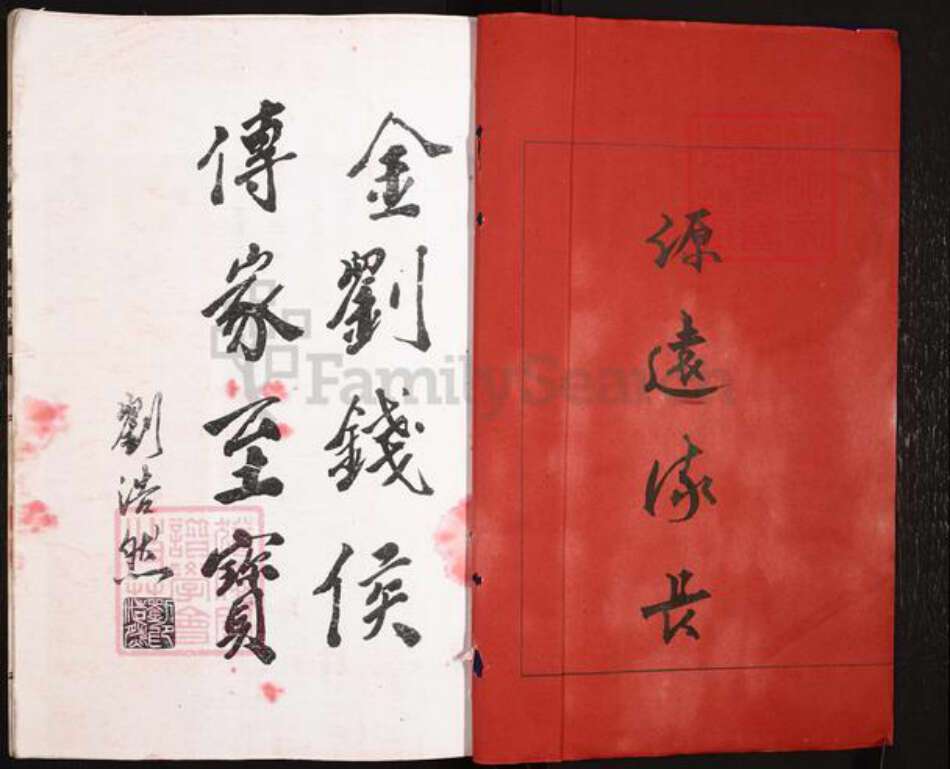 源遠流長
金劉錢侯
傳家至寶
劉浩然
FamilySearch